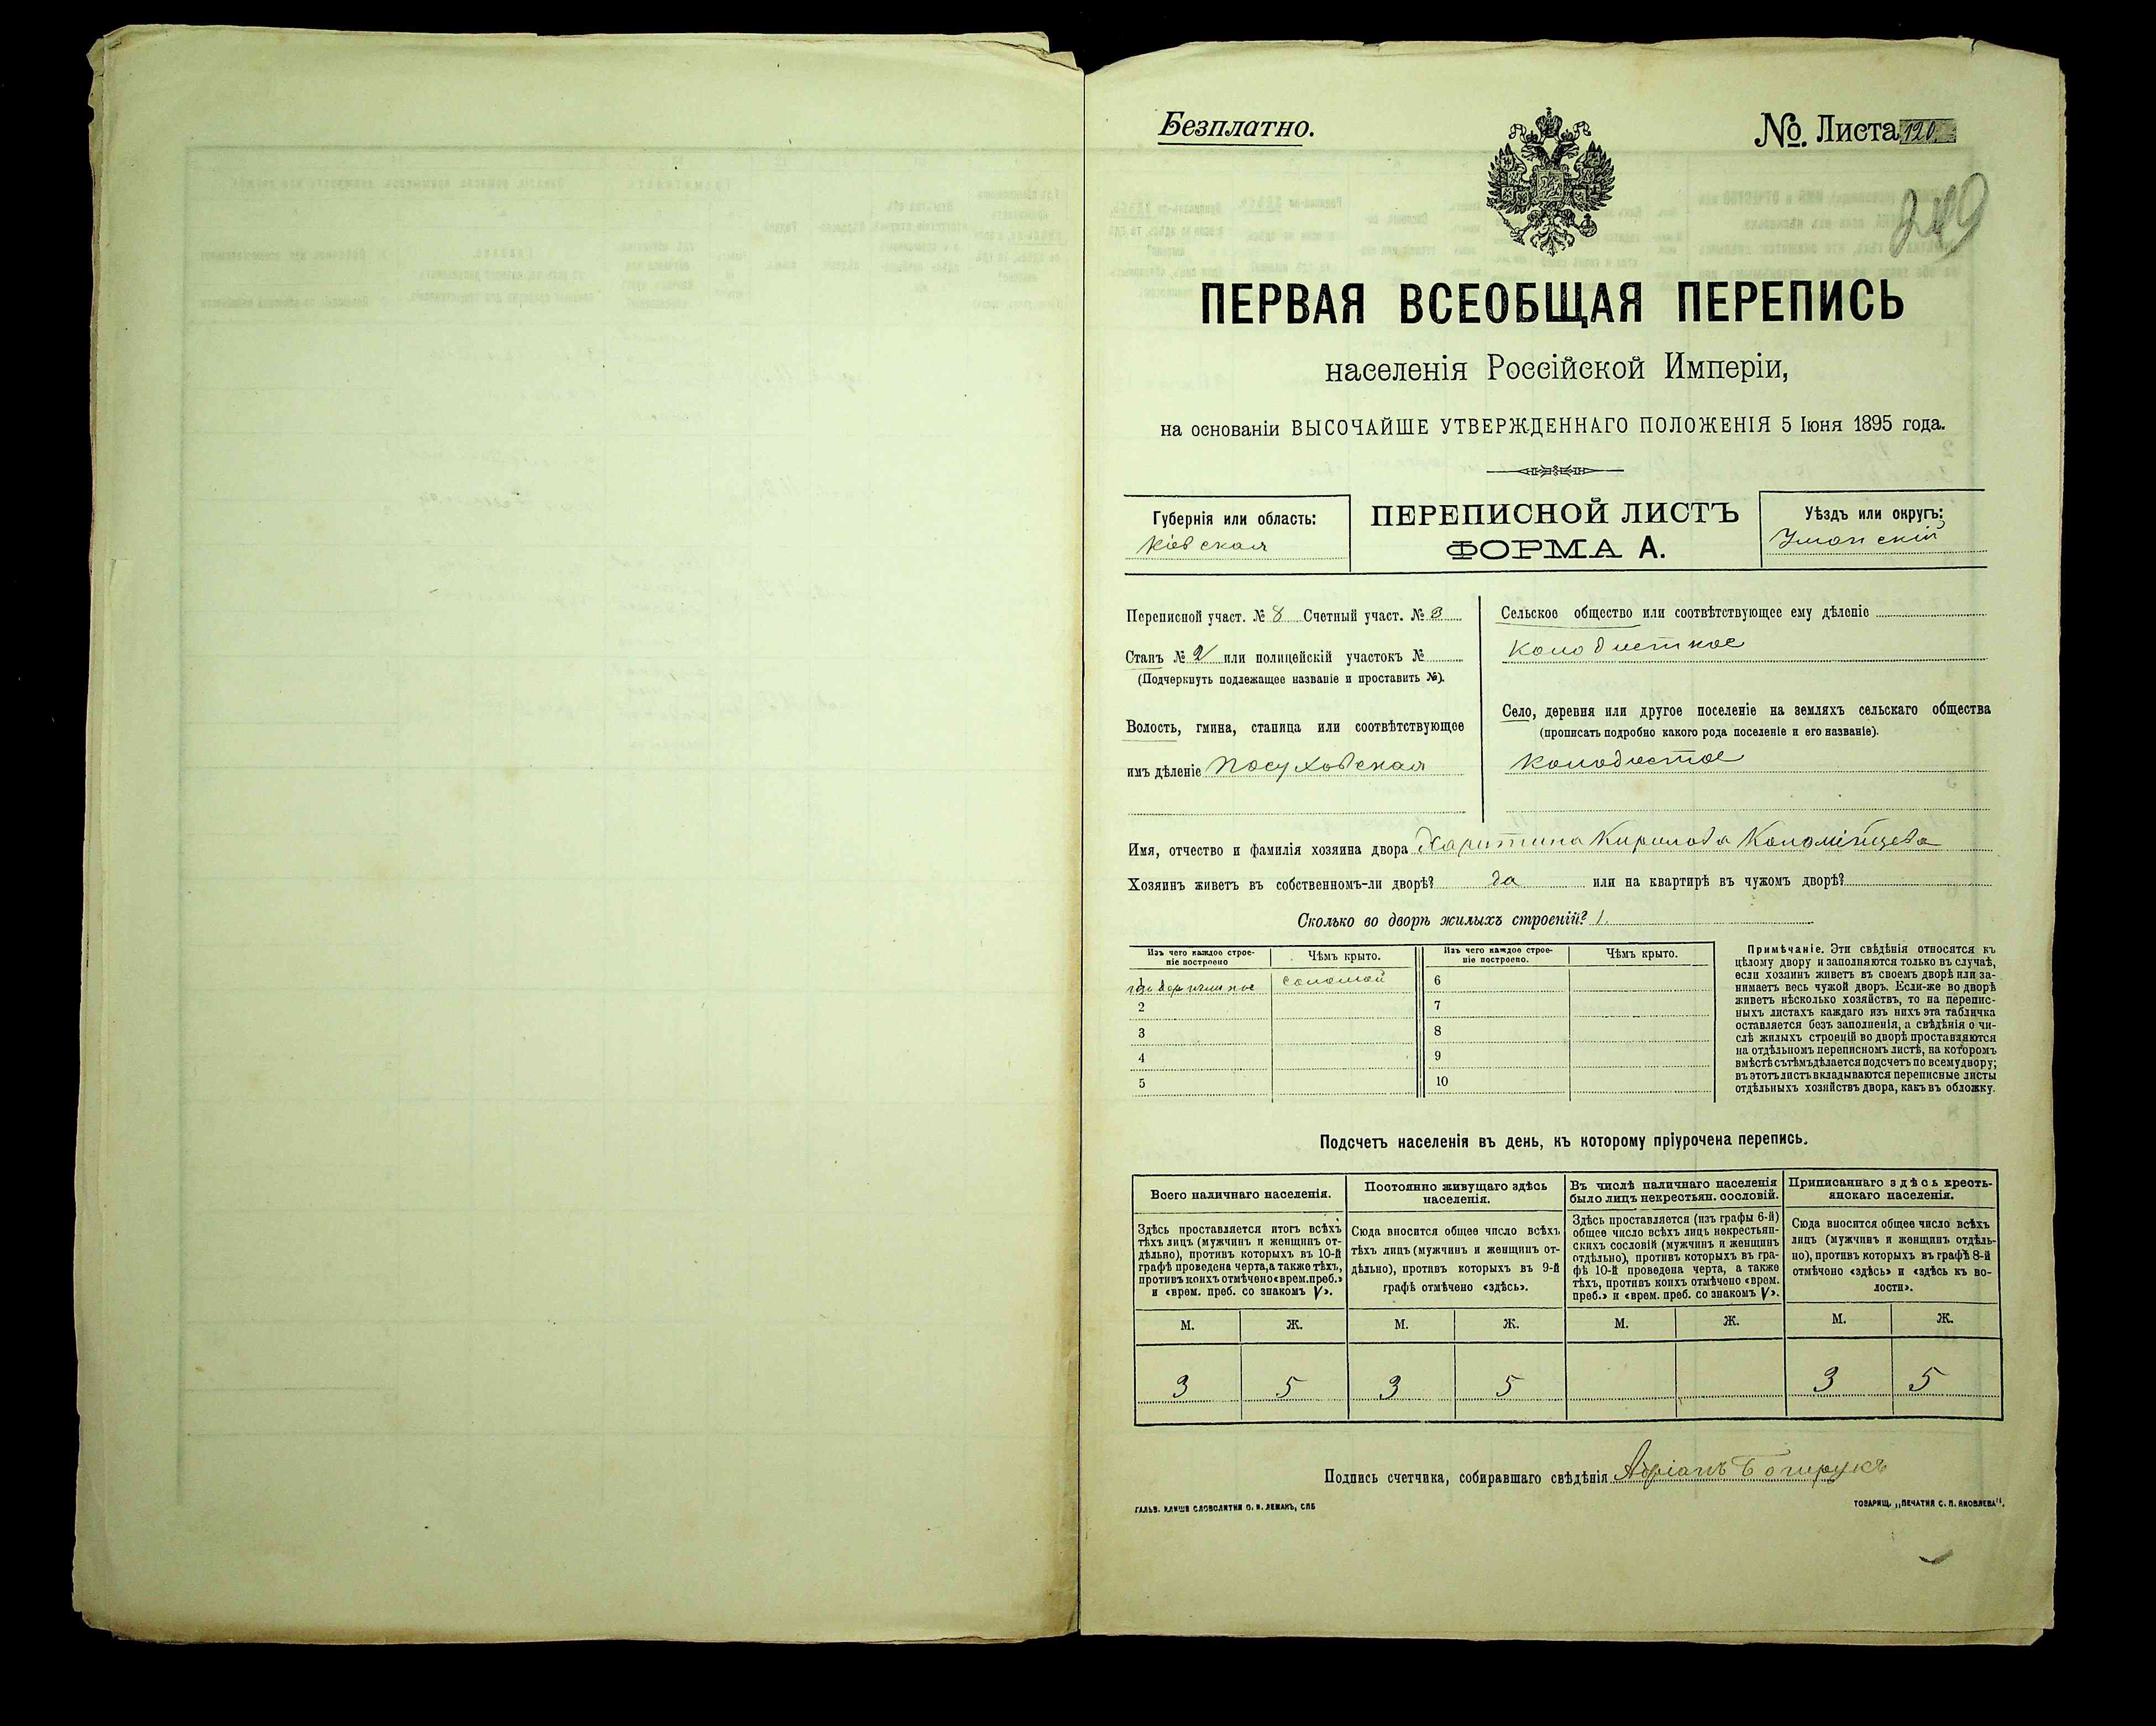 Безплатно.
№. Листа 120.
249
ПЕРВАЯ ВСЕОБЩАЯ ПЕРЕПИСЬ
населенія Россійской Имперіи,
на основаніи ВЫСОЧАЙШЕ УТВЕРЖДЕННАГО ПОЛОЖЕНІЯ 5 Іюня 1895 года.
Губернія или область:
Кіевская
ПЕРЕПИСНОЙ ЛИСТЪ
ФОРМА А.
Уѣздъ или округъ:
Уманскій
Переписной участ. № 8 Счетный участ. № 3
Станъ № 2 или полицейскій участокъ №
(Подчеркнуть подлежащее названіе и проставить №).
Волость, гмина, станица или соотвѣтствующее
имъ дѣленіе Посуховская
Сельское общество или соотвѣтствующее ему дѣленіе
Колодисткое
Село, деревня или другое поселеніе на земляхъ сельскаго общества
(прописать подробно какого рода поселеніе и его названіе).
Колодистое
Имя, отчество и фамилія хозяина двора Харитина Кирилова Коломійцева
Хозяинъ живетъ въ собственномъ-ли дворѣ? да или на квартирѣ въ чужомъ дворѣ?
Сколько во дворѣ жилыхъ строеній? 1.
Изъ чего каждое строе-
ніе построено
Чѣмъ крыто.
Изъ чего каждое строе-
ніе построено.
Чѣмъ крыто.
1 соломой
2
3
4
5
6
7
8
9
10
Примѣчаніе. Эти свѣдѣнія относятся къ
цѣлому двору и заполняются только въ случаѣ,
если хозяинъ живетъ въ своемъ дворѣ или за-
нимаетъ весь чужой дворъ. Если-же во дворѣ
живетъ нѣсколько хозяйствъ, то на перепис-
ныхъ листахъ каждаго изъ нихъ эта табличка
оставляется безъ заполненія, а свѣдѣнія о чи-
слѣ жилыхъ строеній во дворѣ проставляются
на отдѣльномъ переписномъ листѣ, на которомъ
вмѣстѣ съ тѣмъ дѣлается подсчетъ по всему двору;
въ этотъ листъ вкладываются переписные листы
отдѣльныхъ хозяйствъ двора, какъ въ обложку.
Подсчетъ населенія въ день, къ которому пріурочена перепись.
Всего наличнаго населенія.
Здѣсь проставляется итогъ всѣхъ
тѣхъ лицъ (мужчинъ и женщинъ от-
дѣльно), противъ которыхъ въ 10-й
графѣ проведена черта, а также тѣхъ,
противъ коихъ отмѣчено «врем. преб.»
и «врем. преб. со знакомъ V».
Постоянно живущаго здѣсь
населенія.
Сюда вносится общее число всѣхъ
тѣхъ лицъ (мужчинъ и женщинъ от-
дѣльно), противъ которыхъ въ 9-й
графѣ отмѣчено «здѣсь».
Въ числѣ наличнаго населенія
было лицъ некрестьян. сословій.
Здѣсь проставляется (изъ графы 6-й)
общее число всѣхъ лицъ некрестьян-
скихъ сословій (мужчинъ и женщинъ
отдѣльно), противъ которыхъ въ гра-
фѣ 10-й проведена черта, а также
тѣхъ, противъ коихъ отмѣчено «врем.
преб.» и «врем. преб. со знакомъ V».
Приписаннаго здѣсь кресть-
янскаго населенія.
Сюда вносится общее число всѣхъ
лицъ (мужчинъ и женщинъ отдѣль-
но), противъ которыхъ въ графѣ 8-й
отмѣчено «здѣсь» и «здѣсь къ во-
лости».
М. Ж. М. Ж. М. Ж. М. Ж.
3 5 3 5 3 5
Подпись счетчика, собиравшаго свѣдѣнія Адріанъ
ГАЛЬВ. КЛИШЕ СЛОВОЛИТНИ О. И. ЛЕМАНЪ, СПБ
ТОВАРИЩ. „ПЕЧАТНЯ С. П. ЯКОВЛЕВА“.